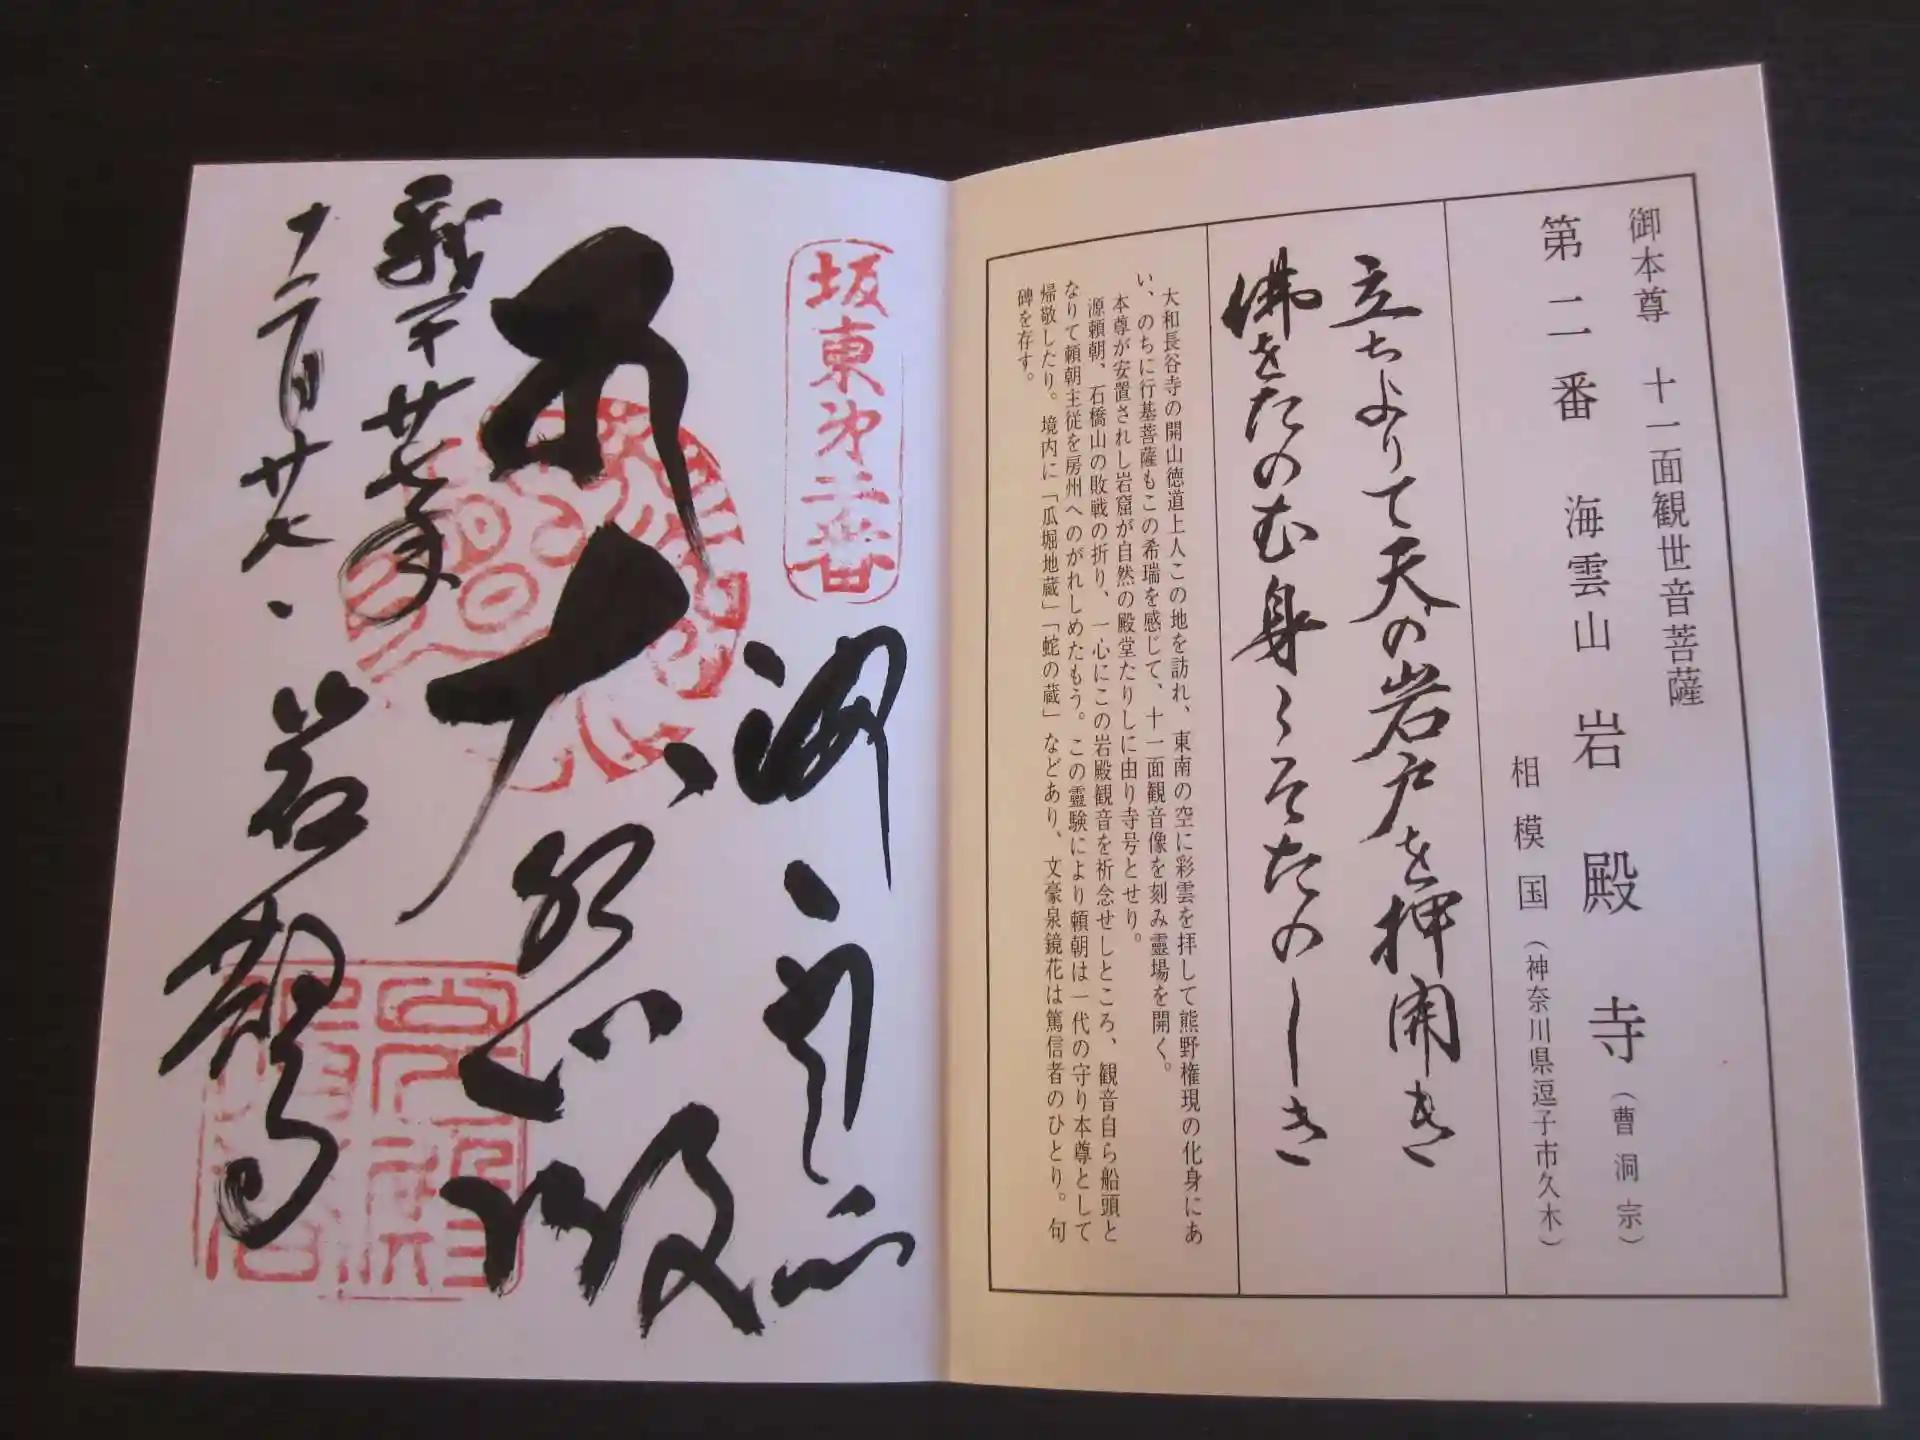 御本尊 十一面観世音菩薩
第二番 海雲山 岩殿寺（曹洞宗）
相模国（神奈川県逗子市久木）
立ちよりて天の岩戸を押開き
佛をたのむ身こそたのしき
大和長谷寺の開山徳道上人この地を訪れ、東南の空に彩雲を拝して熊野権現の化身にあ
い、のちに行基菩薩もこの希瑞を感じて、十一面観音像を刻み霊場を開く。
本尊が安置されし岩窟が自然の殿堂たりしに由り寺号とせり。
源頼朝、石橋山の敗戦の折り、一心にこの岩殿観音を祈念せしところ、観音自ら船頭と
なりて頼朝主従を房州へのがれしめたもう。この霊験により頼朝は一代の守り本尊として
帰敬したり。境内に「瓜堀地蔵」「蛇の蔵」などあり、文豪泉鏡花は篤信者のひとり。句
碑を存す。
坂東第二番
海雲山
大悲殿
平廿七年
十二月廿七日
岩殿寺